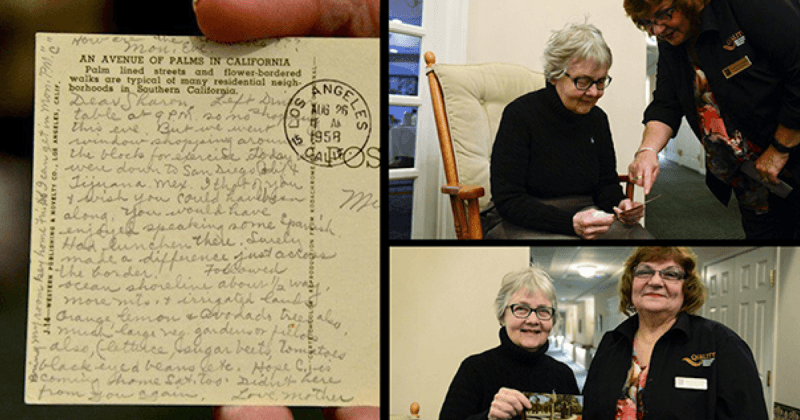 How are the
Mon. Eve.
AN AVENUE OF PALMS IN CALIFORNIA
Palm lined streets and flower-bordered
walks are typical of many residential neigh-
borhoods in Southern California.
Dear Sharon, Left Din
table at 9 P.M. so no shopping
this eve. But we went
window shopping around
the blocks for exercise. Today
were down to San Diego, Cal &
Tijuana Mex. I thot of you
& wish you could have been
along. You would have
enjoyed speaking some Spanish
Had luncheon there. Surely
made a difference just across
the border. Followed
ocean shoreline about ½ way,
more mts. & irrigated land
Orange lemon & avocado trees also,
much large veg. gardens or fields
also, (lettuce, sugar beets, tomatoes
black-eyed beans, etc. Hope C. is
coming home Sat. too. Didn't hear
from you again. Love, Mother
LOS ANGELES
AUG 26
1958
CALIF.
POS
WESTERN PUBLISHING & NOVELTY CO., LOS ANGELES, CALIF.
QUALITY
QUALITY